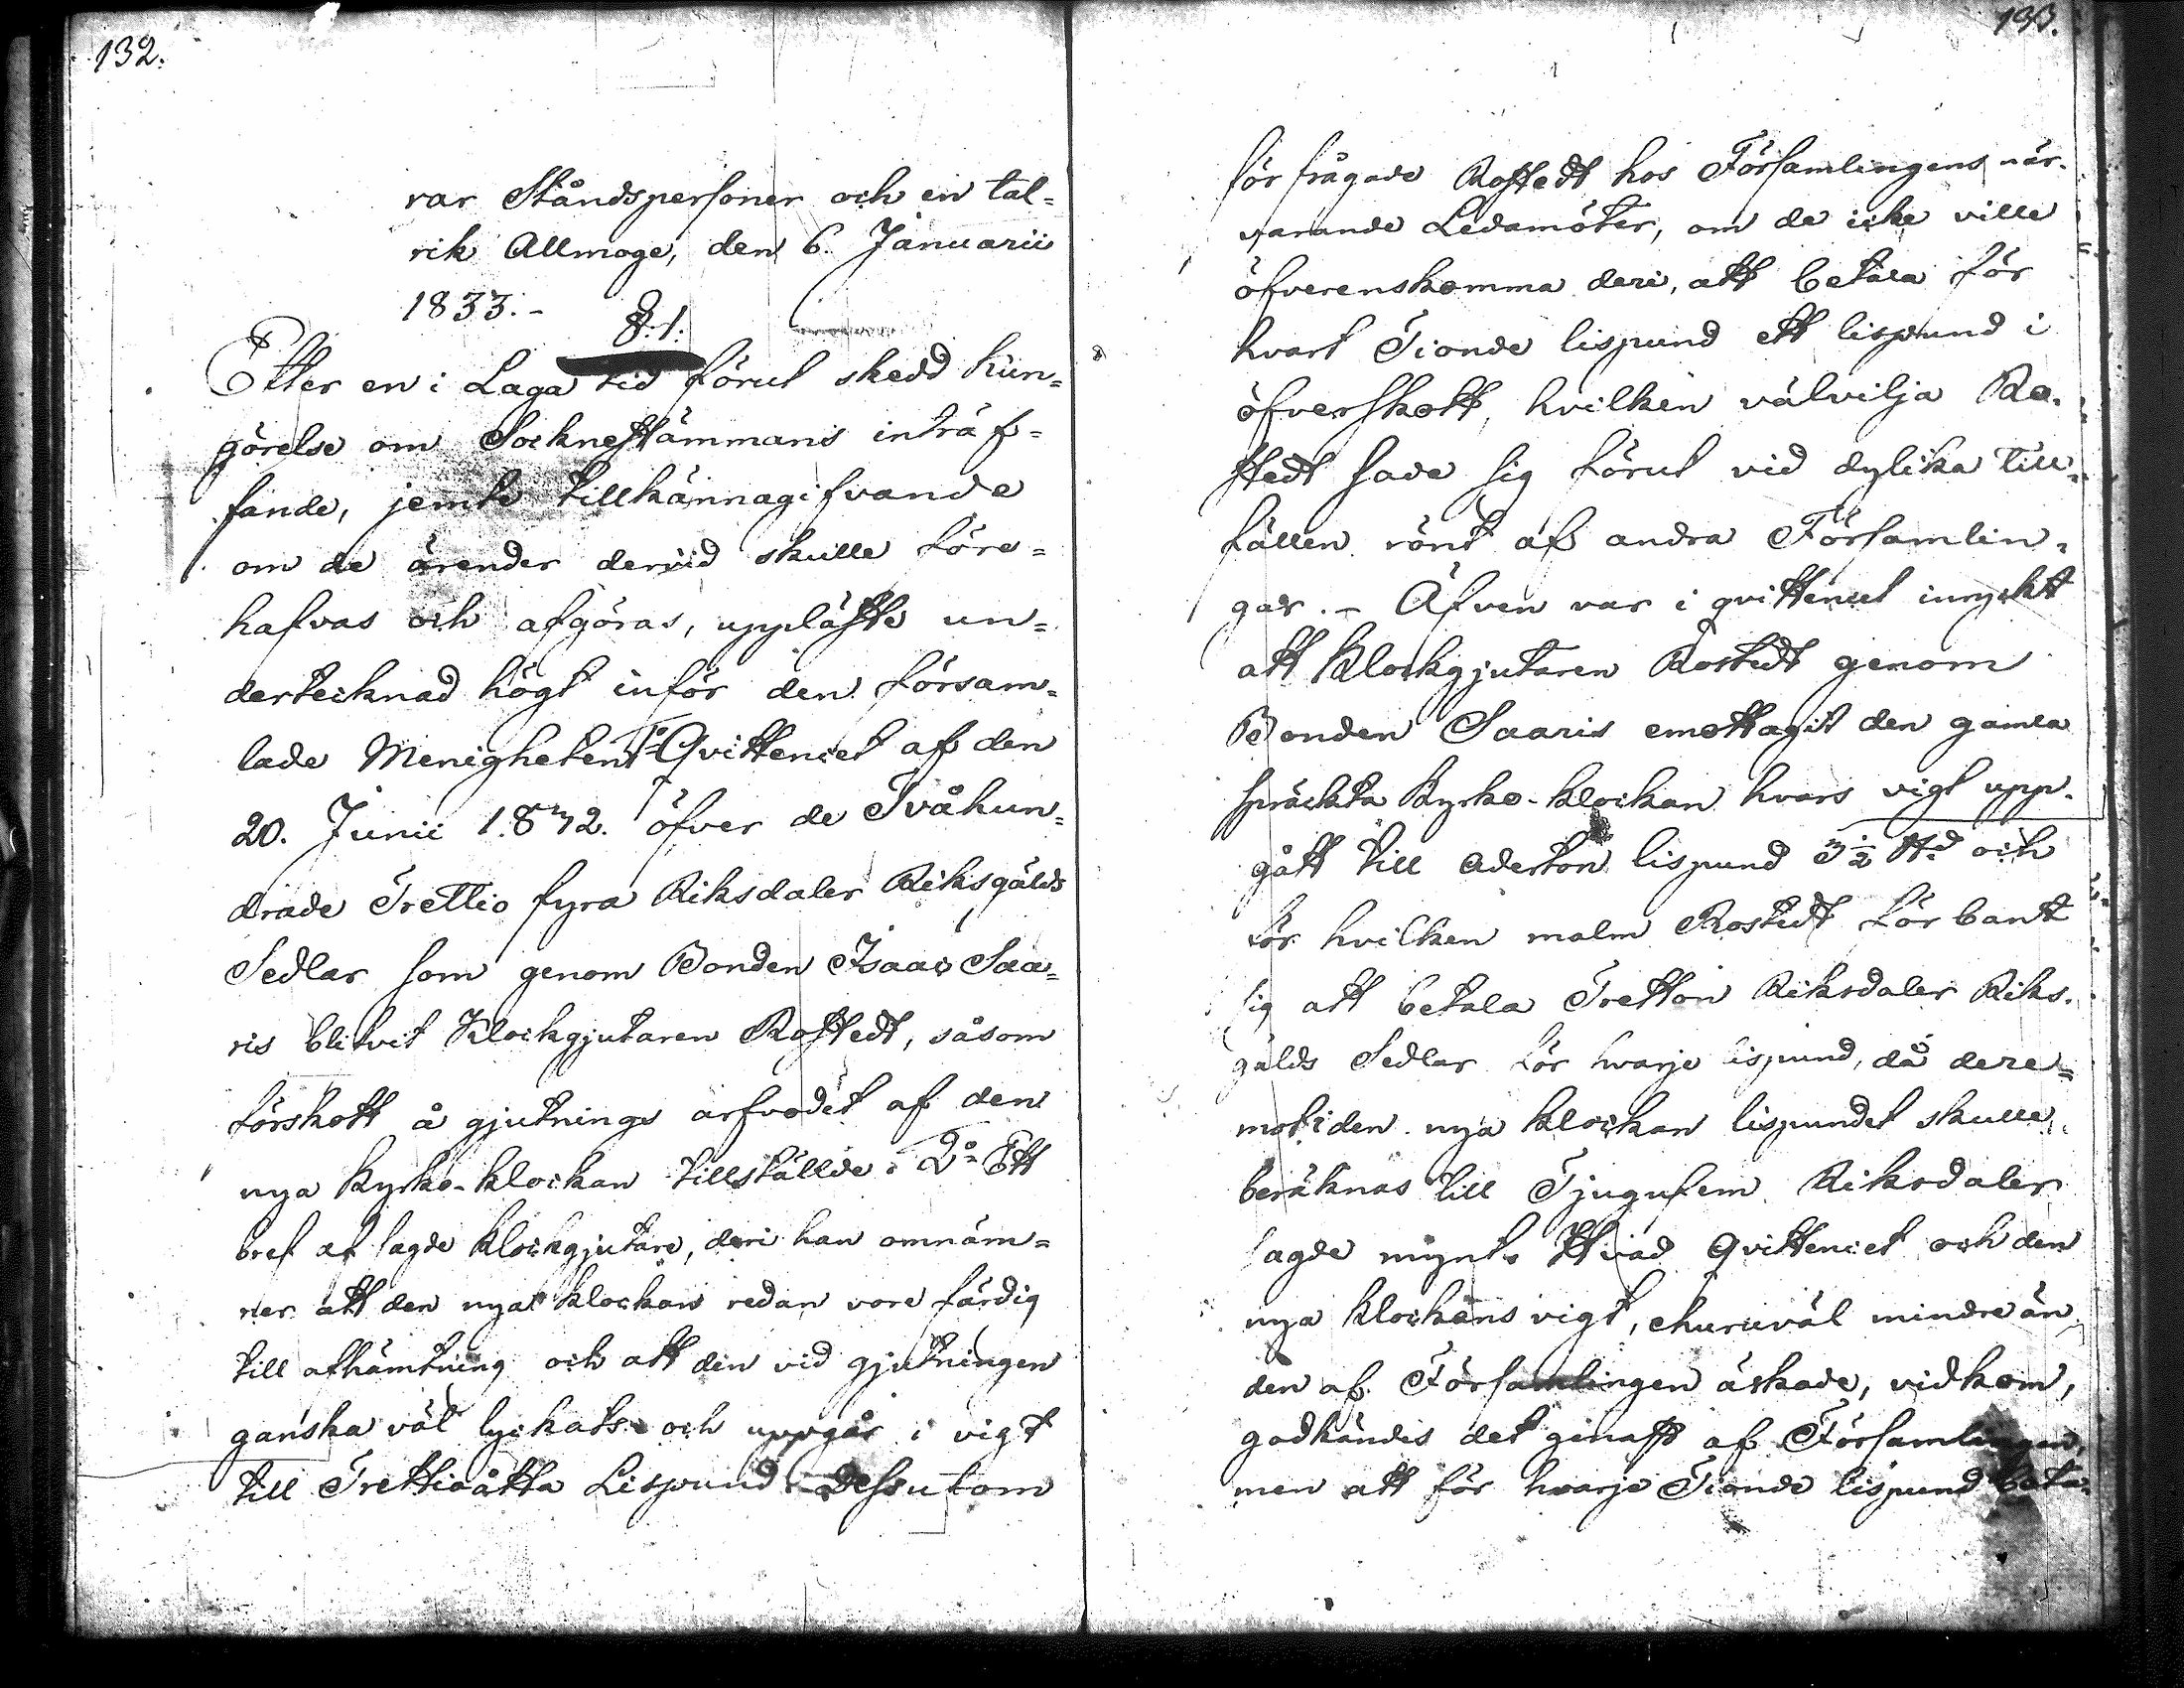 132.
var Ståndspersoner och en tal=
rik Allmoge, den 6. Januarii
1833.-
§.1.
Efter en i Laga tid förut skedd kun=
görelse om Socknestämmans inträf=
fande, jemte tillkännagifvande
om de ärender dervid skulle före=
hafvas och afgöras, uppläste un=
dertecknad högt inför den försam=
lade Menigheten 1º Qvittencet af den
20. Junii 1832. öfver de Tvåhun=
drade Trettio fyra Riksdaler Riksgälds
Sedlar som genom Bonden Isaac Saa=
ris blifvit Klockgjutaren Rostedt, såsom
förskott å gjutnings arfvodet af den
nya Kyrko-klockan tillställde. 2º Ett
bref af sagde Klockgjutare, deri han omnäm=
ner att den nya klockan redan vore färdig
till afhämtning och att den vid gjutningen
ganska väl lyckats och uppgår i vigt
till Trettioåtta Lispund. Dessutom
133.
förfrågade Rostedt hos Församlingens när-
varande Ledamöter, om de icke ville
öfverenskomma deri, att betala för
hvart Tionde lispund ett lispund i
öfverskott, hvilken välvilja Ro-
stedt sade sig förut vid dylika till=
fällen rönt af andra Församlin=
gar. - Äfven var i qvittencet inryckt
att Klockgjutaren Rostedt genom
Bonden Saaris emottagit den gamla
spräckta Kyrko-klockan hvars vigt upp-
gått till aderton lispund 3½ och
för hvilken malm Rostedt förbant
sig att betala Tretton Riksdaler Riks-
gälds Sedlar för hvarje lispund, då dere=
mot den nya klockan lispundet skulle
beräknas till Tjugufem Riksdaler
sagde mynt. Hvad Qvittencet och den
nya klockans vigt, churuväl mindre än
den af Församlingen äskade, vidkom,
godkändes det genast af Församlingen,
men att för hvarje Tionde lispund beta-